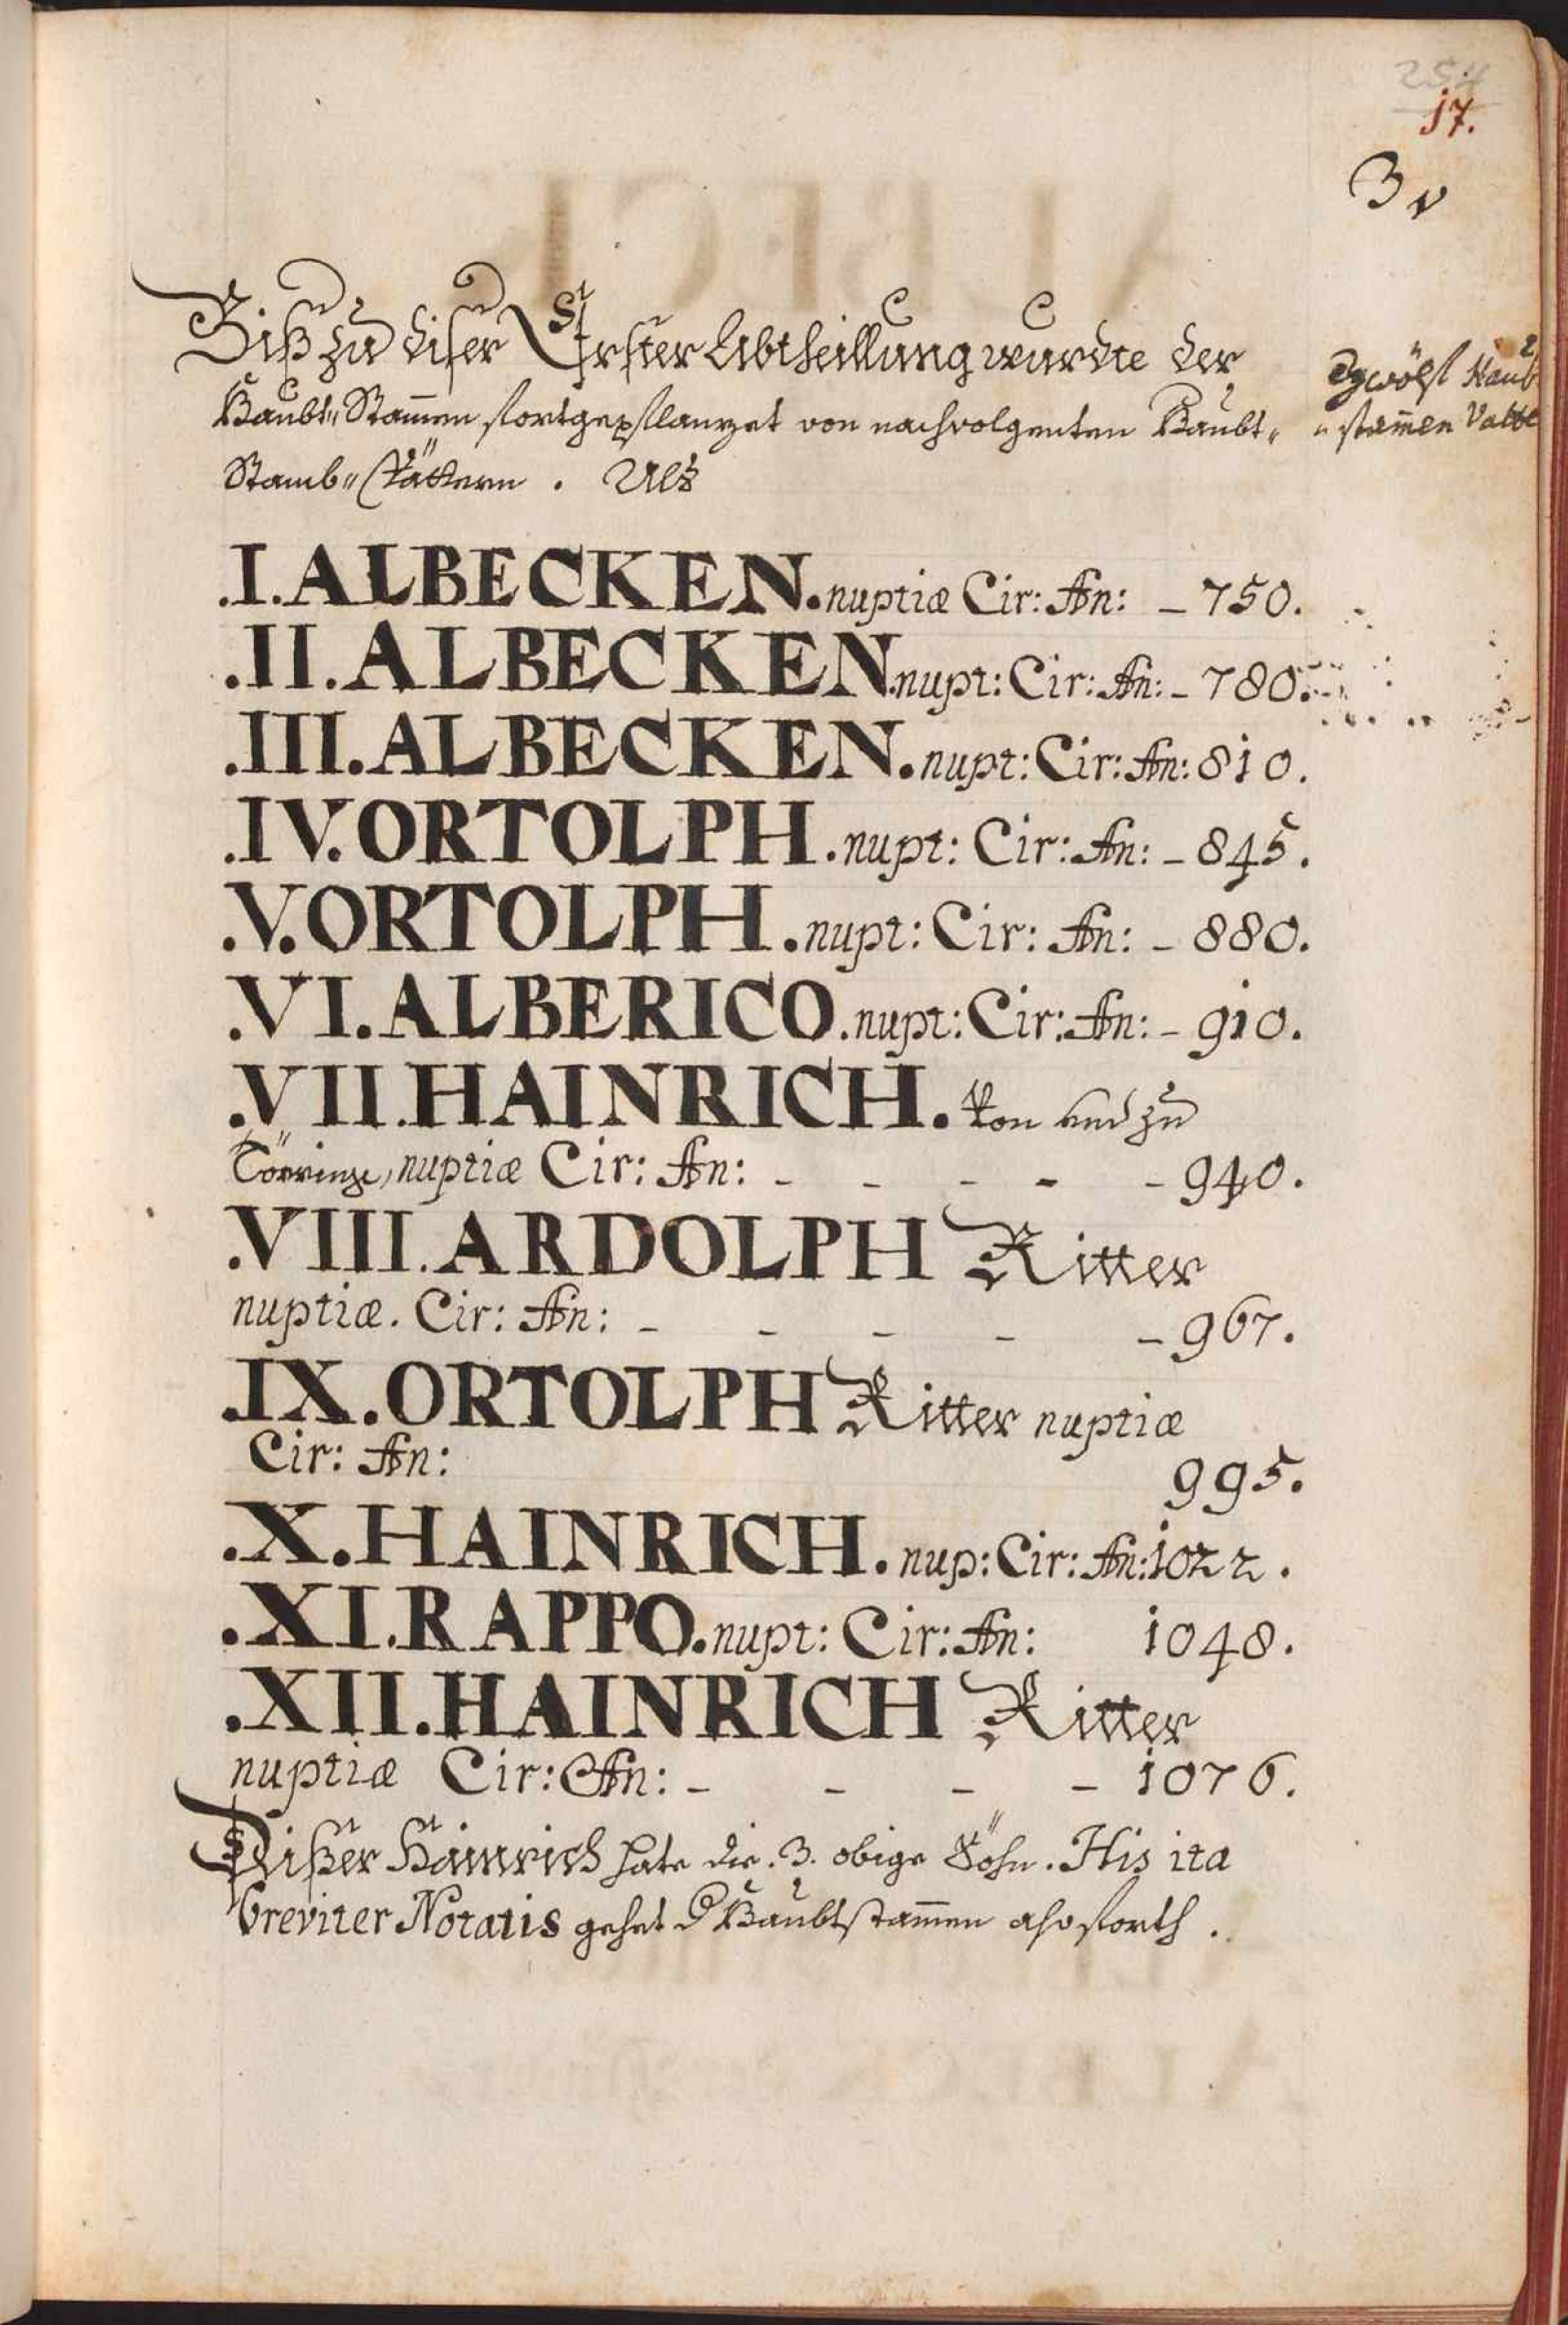 254
17.
3v
Biß zu diser Erster Abtheillung wurdte der
Haubt„ Stam̄en fortgepflanzet von nachvolgenten Haubt„
Stamb„ Vättern . Alß
Zwölf Haub
„ stam̄en Vätte
.I. ALBECKEN. nuptiæ Cir: An: – 750.
.II. ALBECKEN. nupt: Cir: An: – 780.
.III. ALBECKEN. nupt: Cir: An: 810.
.IV. ORTOLPH. nupt: Cir: An: – 845.
.V. ORTOLPH. nupt: Cir: An: – 880.
.VI. ALBERICO. nupt: Cir: An: – 910.
.VII. HAINRICH. Von und zu
Törring, nuptiæ Cir: An: – – – – – 940.
.VIII. ARDOLPH Ritter
nuptiæ. Cir: An: – – – – – 967.
.IX. ORTOLPH Ritter nuptiæ
Cir: An: 995.
.X. HAINRICH. nup: Cir: An: 1022.
.XI. RAPPO. nupt: Cir: An: 1048.
.XII. HAINRICH Ritter
nuptiæ Cir: An: – – – – 1076.
Dißer Hainrich hate die .3. obige Söhn. His ita
breviter Notatis gehet d Haubtstam̄en also forth .